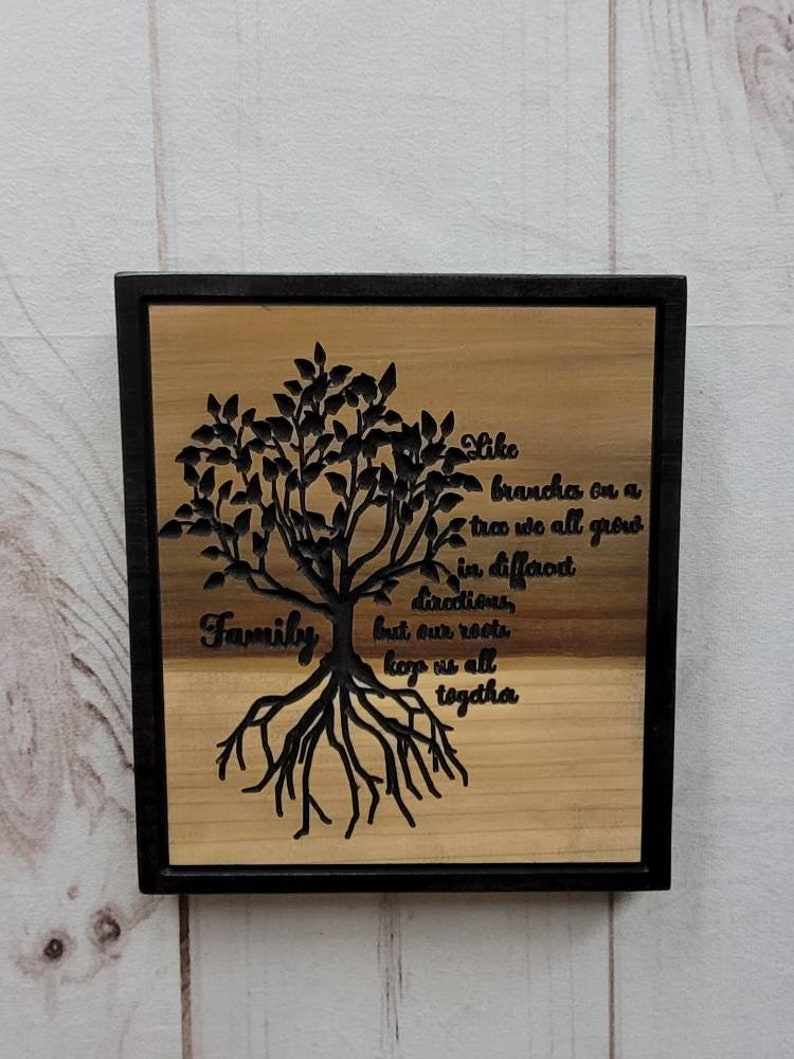 Like
branches on a
tree we all grow
in different
directions,
Family
but our roots
keep us all
together